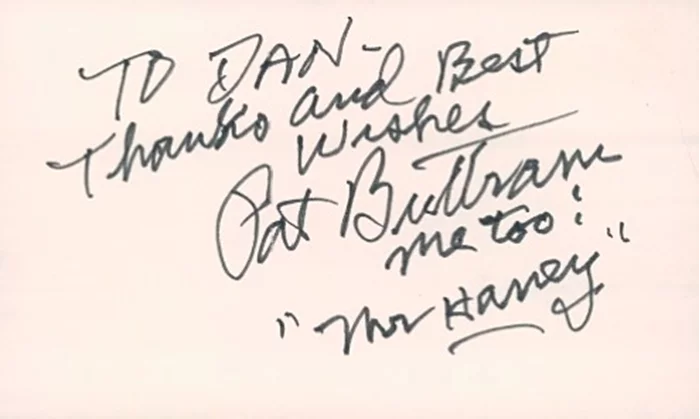 TO DAN-
Thanks and Best
Wishes
Pat Buttram
me too!
"Mr Haney"